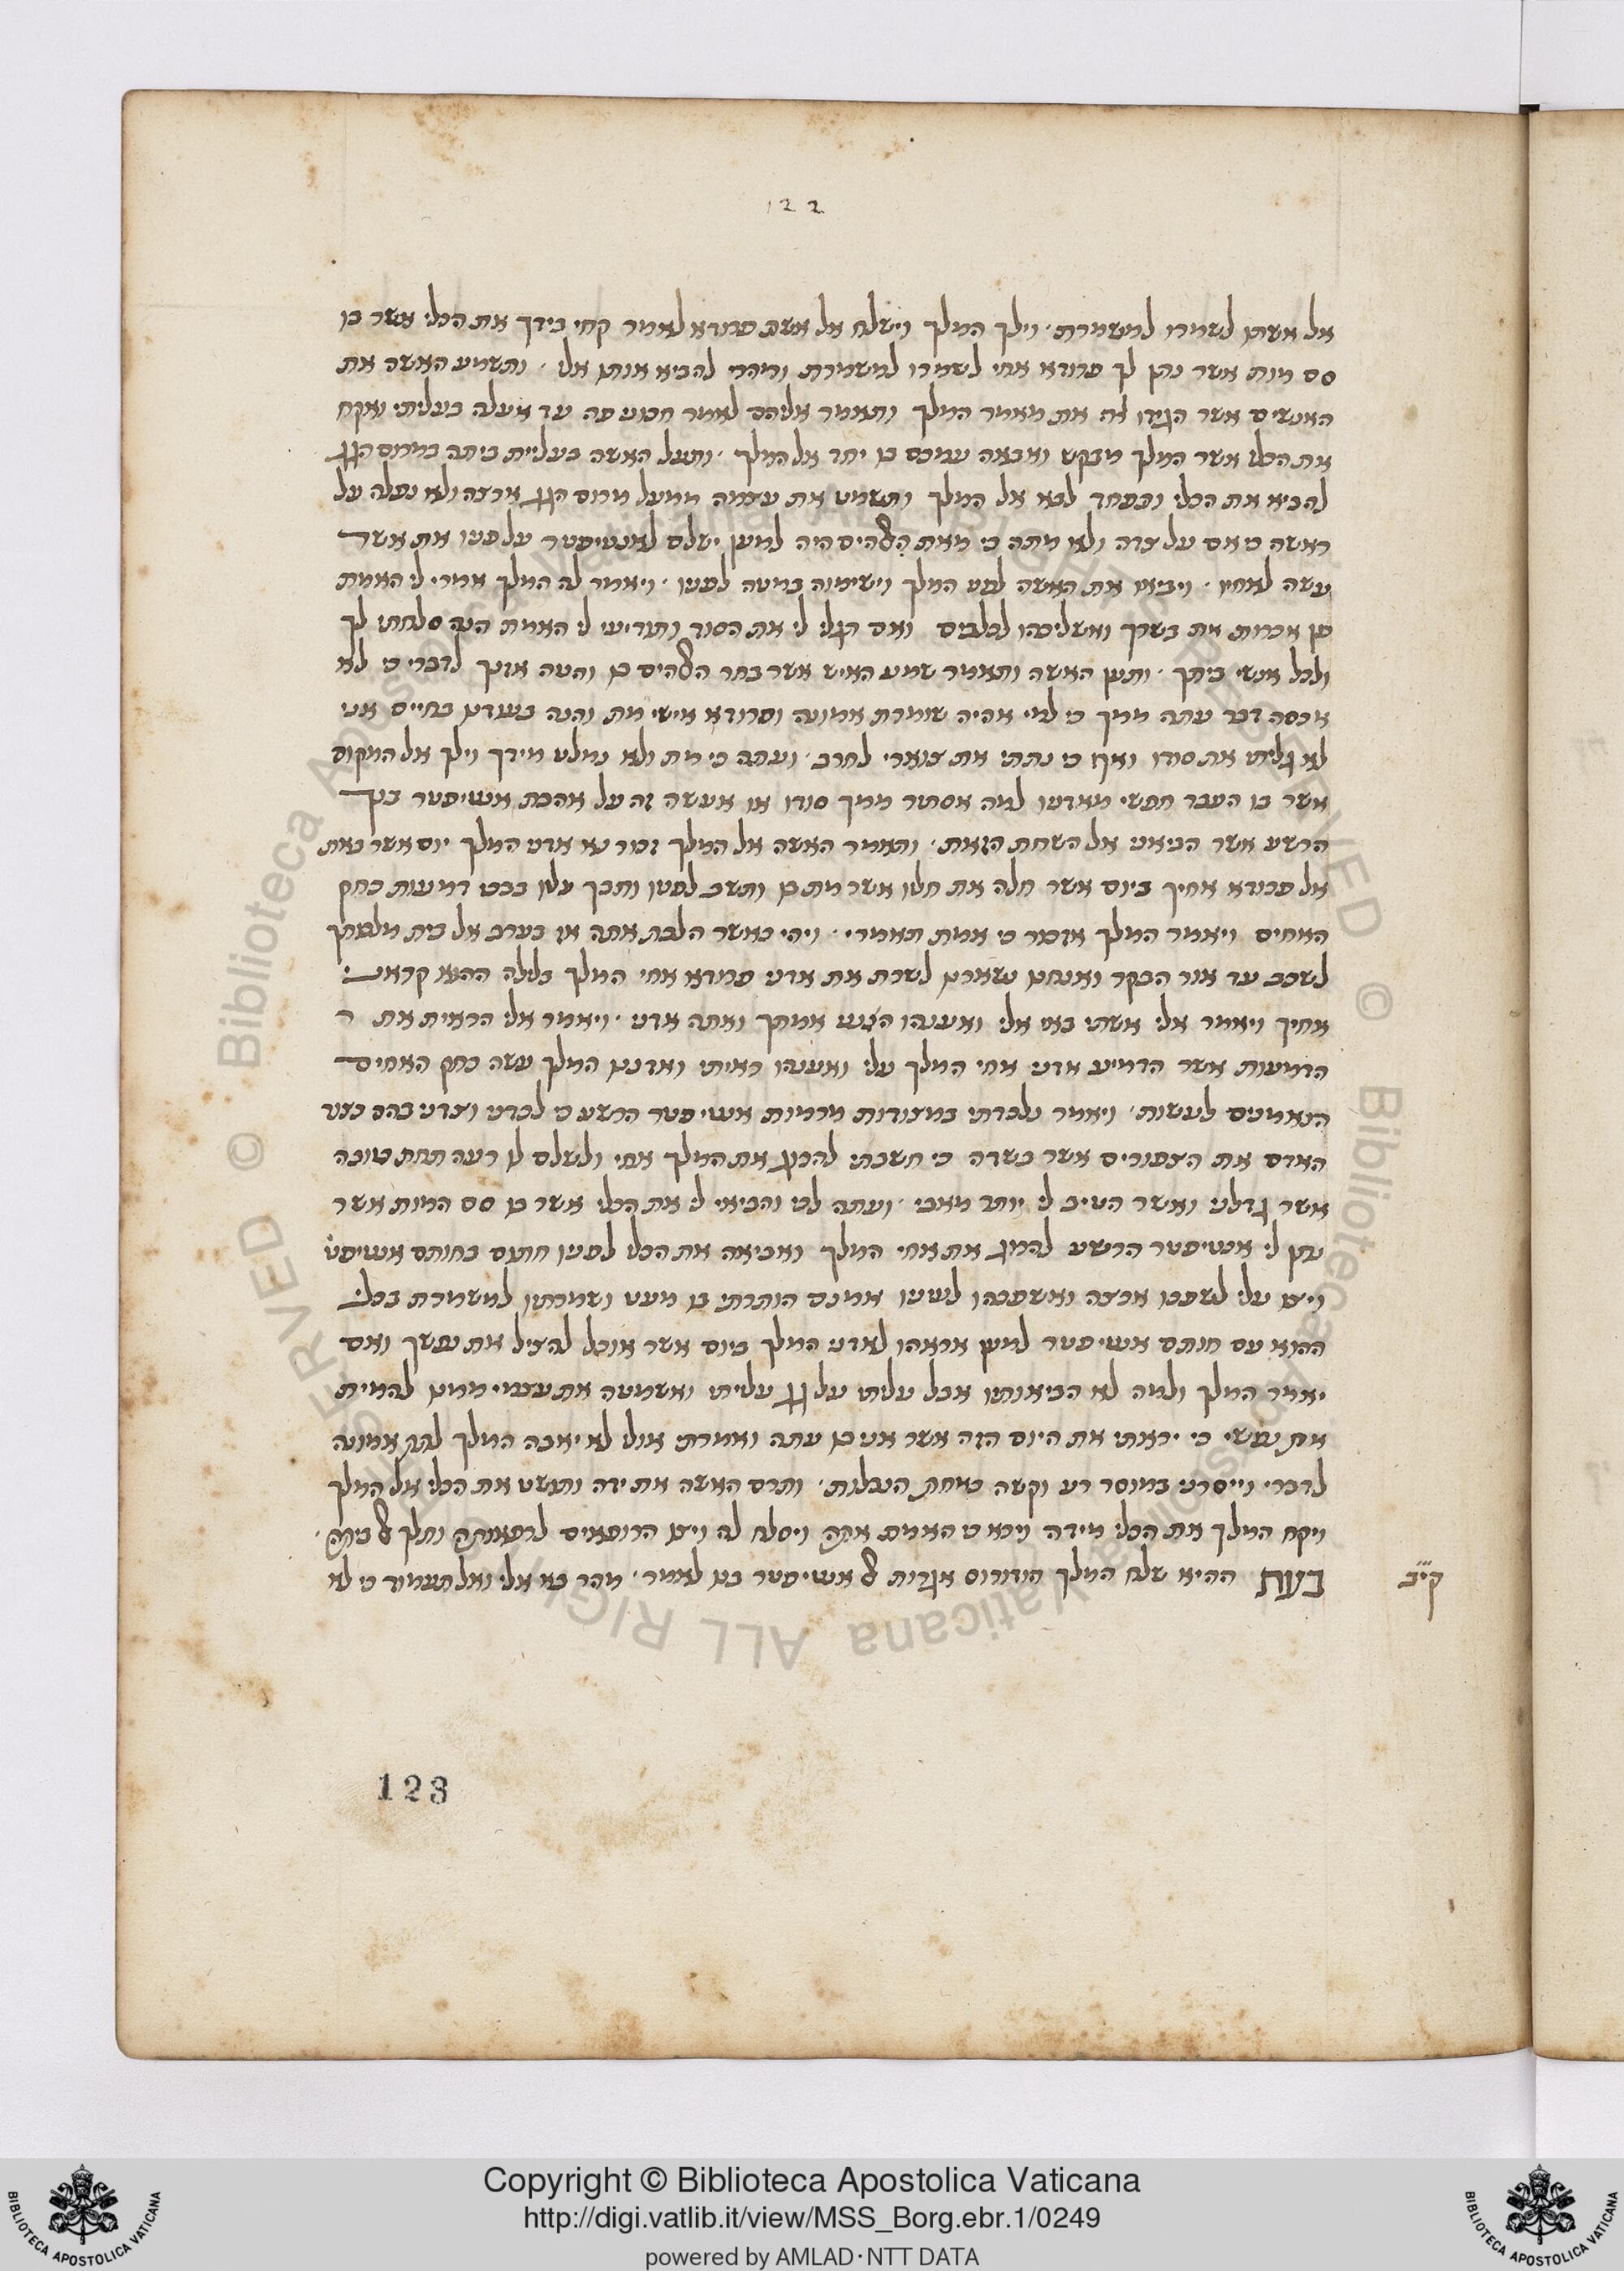 122
אל אשתו לשמרו למשמרת · וילך המלך וישלח אל אשת פרודא לאמר קחי בידך את הכלי אשר בו
סם מות אשר נתן לך פרודא אחי לשמרו למשמרת ומהרי להביא אותו אלי · ותשמע האשה את
האנשים אשר הגידו לה את מאמר המלך ותאמר אליהם לאמר חכו נא פה עד אעלה בעליתי ואקח
את הכלי אשר המלך מבקש ואבואה עמכם בו יחד אל המלך · ותעל האשה בעליית ביתה במרום הגג
להביא את הכלי ובפחד לבא אל המלך ותשמט את עצמה ממעל מרום הגג ארצה ולא נפלה על
ראשה כי אם על צדה ולא מתה כי מאת האלהים היה למען ישלם לאנטיפטר על פניו את אשר
עשה לאחיו · ויביאו את האשה לפני המלך וישימוה במטה לפניו · ויאמר לה המלך אמרי לי האמת
פן אכרות את בשרך ואשליכהו לכלבים ואם תגלי לי את הסוד ותודיעי לי האמת הנה סלחתי לך
ולכל אנשי ביתך · ותען האשה ותאמר שמע האיש אשר בחר האלהים בו והטה אזנך לדברי כי לא
אכסה דבר עתה ממך כי למי אהיה שומרת אמונה ופרודא אישי מת והנה בעודנו בחיים אני
לא גליתי את סודו ואף כי נתתי את צוארי לחרב · ועתה כי מת ולא נמלט מידך וילך אל המקום
אשר בו העבד חפשי מאדניו למה אסתר ממך סודו או אעשה זה על אהבת אנטיפטר בנך
הרשע אשר הביאני אל השחת הזאת · ותאמר האשה אל המלך זכור נא אדני המלך יום אשר באת
אל פרודא אחיך ביום אשר חלה את חליו אשר מת בו ותשב לפניו ותבך עליו בבכי דמעות כחק
האחים ויאמר המלך אזכור כי אמת תאמרי · ויהי כאשר הלכת אתה או בערב אל בית מלכותך
לשכב עד אור הבקר ואנחנו נשארנו לשרת את אדני פרודא אחי המלך בלילה ההוא קראני
אחיך ויאמר אלי אשתי באי אלי ואענהו הנני אמתך ואתה אדני · ויאמר אלי הראית את ר
הדמעות אשר הדמיע אדני אחי המלך עלי ואענהו ראיתי ואדננו המלך עשה כחק האחים
הנאמנים לעשות · ויאמר נלכדתי במצודות מרמות אנטיפטר הרשע כי לכדני וצדני בהם כצוד
האדם את הצפורים אשר בשדה כי חשבתי להרוג את המלך אחי ולשלם לו רעה תחת טובה
אשר גדלני ואשר הטיב לי יותר מאבי · ועתה לכי והביאי לי את הכלי אשר בו סם המות אשר
נתן לי אנטיפטר הרשע להרוג את אחי המלך ואביאה את הכלי לפניו חתום בחותם אנטיפט
ויצו עלי לשפכו ארצה ואשפכהו לעיניו אמנם הותרתי בו מעט ושמרתיו למשמרת בכלי
ההוא עם חותם אנטיפטר למען אראהו לאדני המלך ביום אשר אוכל להציל את נפשך ואם
יאמר המלך ולמה לא הביאותיו אבל עליתי על גג עליתי ואשמטה את עצמי ממנו להמית
את נפשי כי יראתי את היום הזה אשר אני בו עתה ואמרתי אולי לא יאבה המלך לתת אמונה
לדברי וייסרני במוסר רע וקשה כאחת הנבלות · ותרם האשה את ידה ותושט את הכלי אל המלך
ויקח המלך את הכלי מידה וירא כי האמת אתה ויסלח לה ויצו הרופאים לרפאותה ותלך אל ביתה ·
בעת ההיא שלח המלך הורודוס אגרות אל אנטיפטר בנו לאמר · מהר בא אלי ואל תעמוד כי לא
קי״ב
123
Copyright © Biblioteca Apostolica Vaticana
http://digi.vatlib.it/view/MSS_Borg.ebr.1/0249
powered by AMLAD·NTT DATA